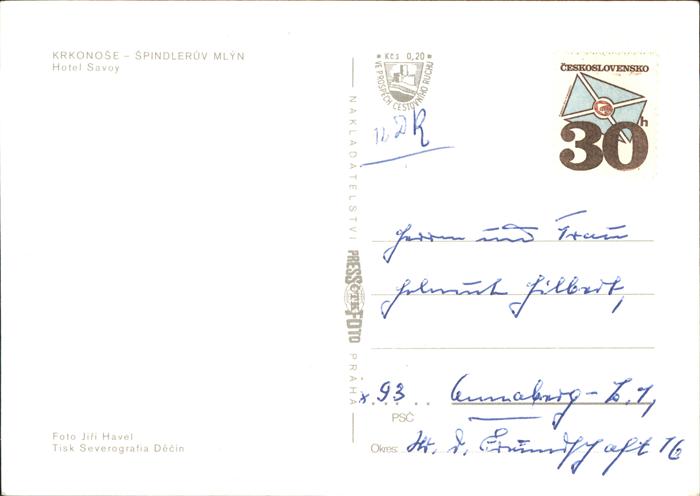 KRKONOŠE – ŠPINDLERŮV MLÝN
Hotel Savoy
* Kčs 0,20 *
VE PROSPĚCH CESTOVNÍHO RUCHU
ČESKOSLOVENSKO
30h
DDR
NAKLADATELSTVÍ PRESSFOTO PRAHA
ČTK
Herrn und Frau
Helmut Hilbert,
x 93 Annaberg-B. 1,
PSČ
Okres: Str. d. Freundschaft 16
Foto Jiří Havel
Tisk Severografia Děčín